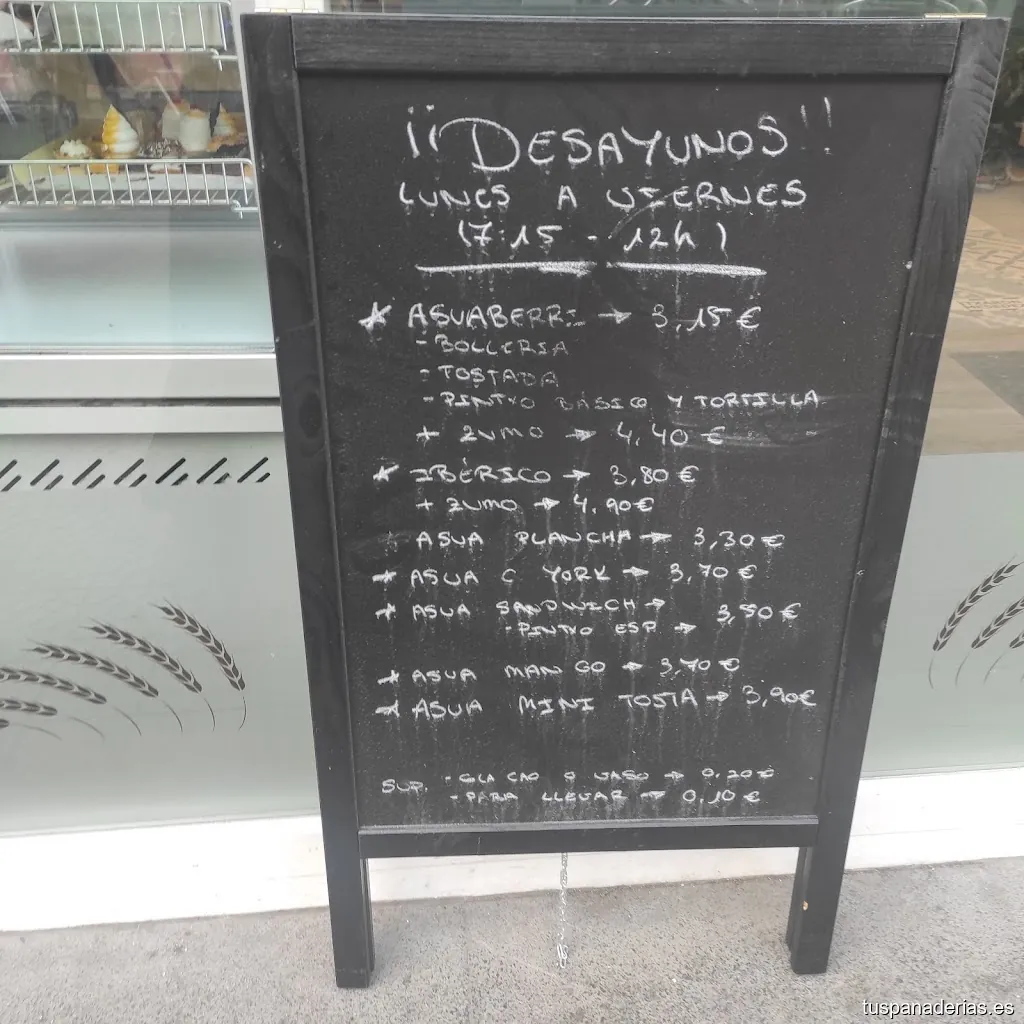 ¡¡DESAYUNOS!!
LUNES A VIERNES
(7:15 - 12h)
* ASUABERRI → 3,15€
- BOLLERIA
- TOSTADA
- PINTXO BÁSICO Y TORTILLA
+ ZUMO → 4,40 €
* IBÉRICO → 3,80€
+ ZUMO → 4,90€
* ASUA PLANCHA → 3,30€
* ASUA C YORK → 3,70 €
* ASUA SANDWICH →
- PINTXO ESP. → 3,50€
* ASUA MANGO → 3,70€
* ASUA MINI TOSTA → 3,90€
SUP. - COLA CAO O VASO → 0,20€
- PARA LLEVAR → 0,10 €
tuspanaderias.es